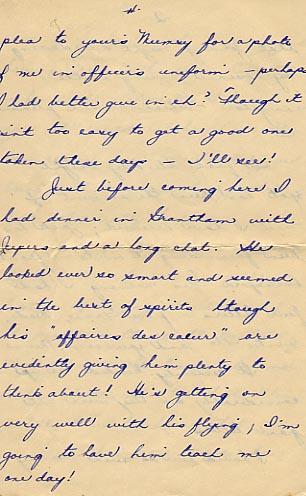 4.
plea to yours Mumsy for a photo
of me in officer's uniform – perhaps
I had better give in eh? Though it
isn't too easy to get a good one
taken these days – I'll see!
Just before coming here I
had dinner in Grantham with
and a long chat. He
looked ever so smart and seemed
in the best of spirits though
his "affaires des coeur" are
evidently giving him plenty to
think about! He's getting on
very well with his flying, I'm
going to have him teach me
one day!